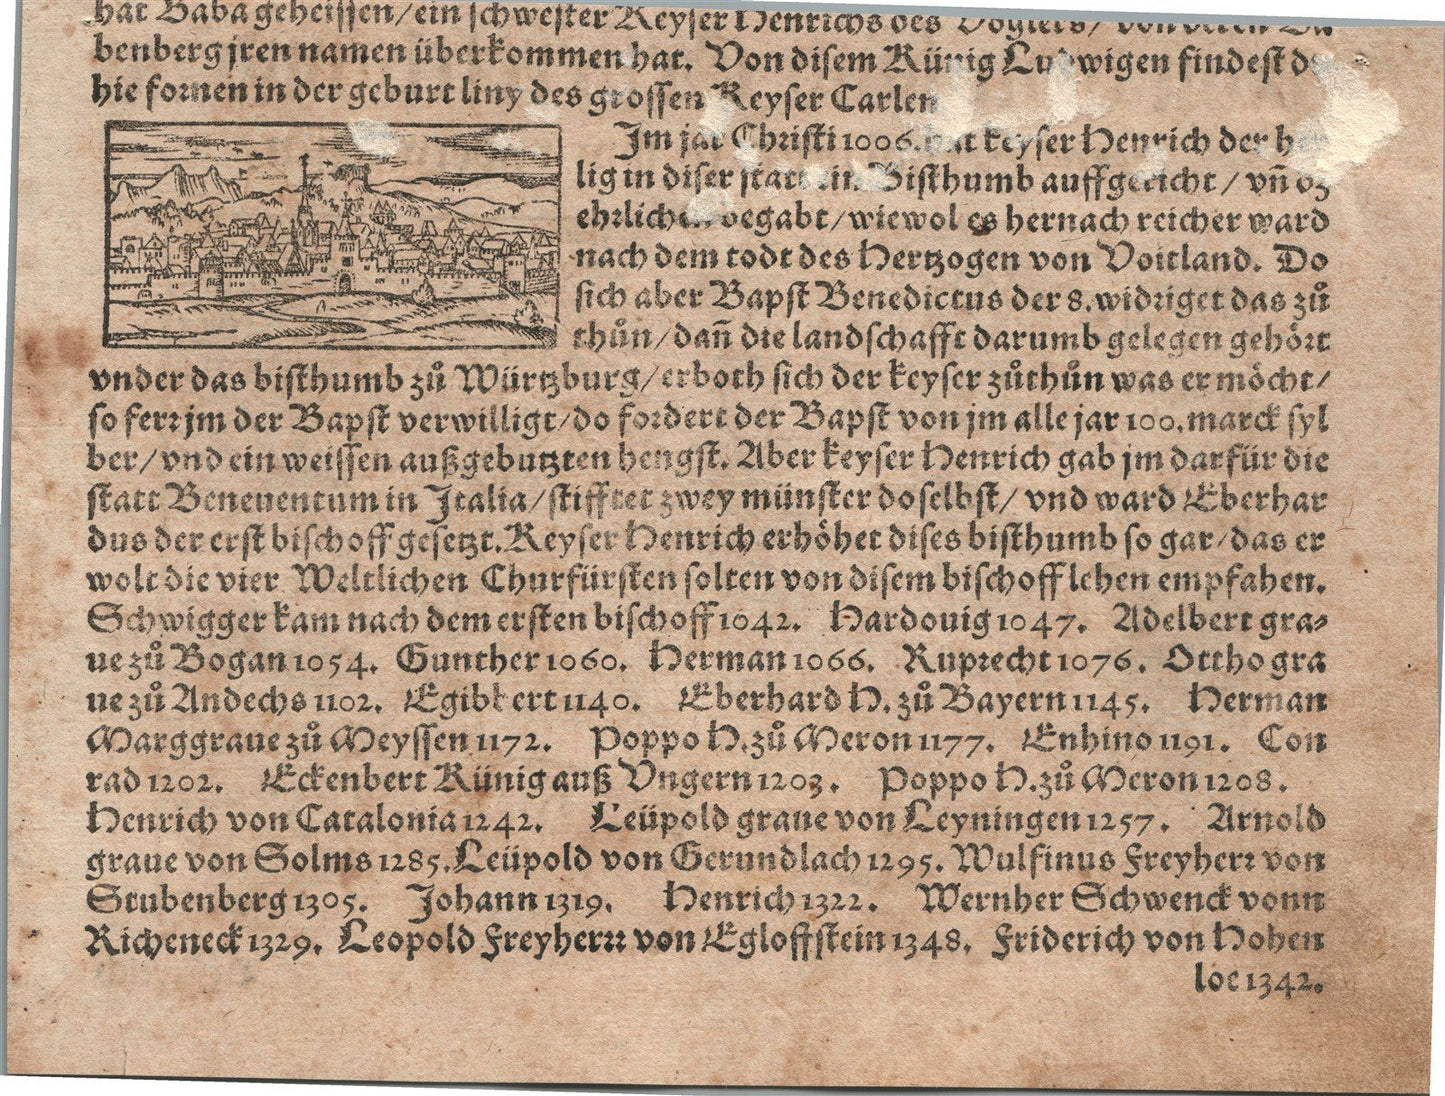 hat Baba geheissen/ein schwester Keyser Henrichs des Voglers/ von deren Ba
benberg jren namen überkommen hat. Von disem Künig Ludwigen findest
hie fornen in der geburt liny des grossen Keyser Carlen
Im jar Christi 1006. hat keyser Henrich der
lig in diser statt ein Bisthumb auffgericht / vñ dz
ehrlichen begabt/wiewol es hernach reicher ward
nach dem todt des Hertzogen von Voitland. Do
sich aber Bapst Benedictus der 8. widriget das zů
thůn/dañ die landschafft darumb gelegen gehört
vnder das bisthumb zů Würtzburg/erboth sich der keyser zůthůn was er möcht/
so ferr jm der Bapst verwilligt/do fordert der Bapst von jm alle jar 100. marck syl
ber/vnd ein weissen außgebutzten hengst. Aber keyser Henrich gab jm darfür die
statt Beneuentum in Italia/stifftet zwey münster doselbst/ vnd ward Eberhar
dus der erst bischoff gesetzt. Keyser Henrich erhöhet dises bisthumb so gar/das er
wolt die vier Weltlichen Churfürsten solten von disem bischoff lehen empfahen.
Schwigger kam nach dem ersten bischoff 1042. Hardouig 1047. Adelbert gra⸗
ue zů Bogan 1054. Gunther 1060. Herman 1066. Ruprecht 1076. Ottho gra
ue zů Andechs 1102. Egibkert 1140. Eberhard H. zů Bayern 1145. Herman
Marggraue zů Meyssen 1172. Poppo H. zů Meron 1177. Enhino 1191. Con
rad 1202. Eckenbert Künig auß Vngern 1203. Poppo H. zů Meron 1208.
Henrich von Catalonia 1242. Leüpold graue von Leyningen 1257. Arnold
graue von Solms 1285. Leüpold von Gerundlach 1295. Wulfinus Freyherr von
Stubenberg 1305. Johann 1319. Henrich 1322. Wernher Schwenck vonn
Richeneck 1329. Leopold Freyherr von Egloffstein 1348. Friderich von Hohen
loe 1342.